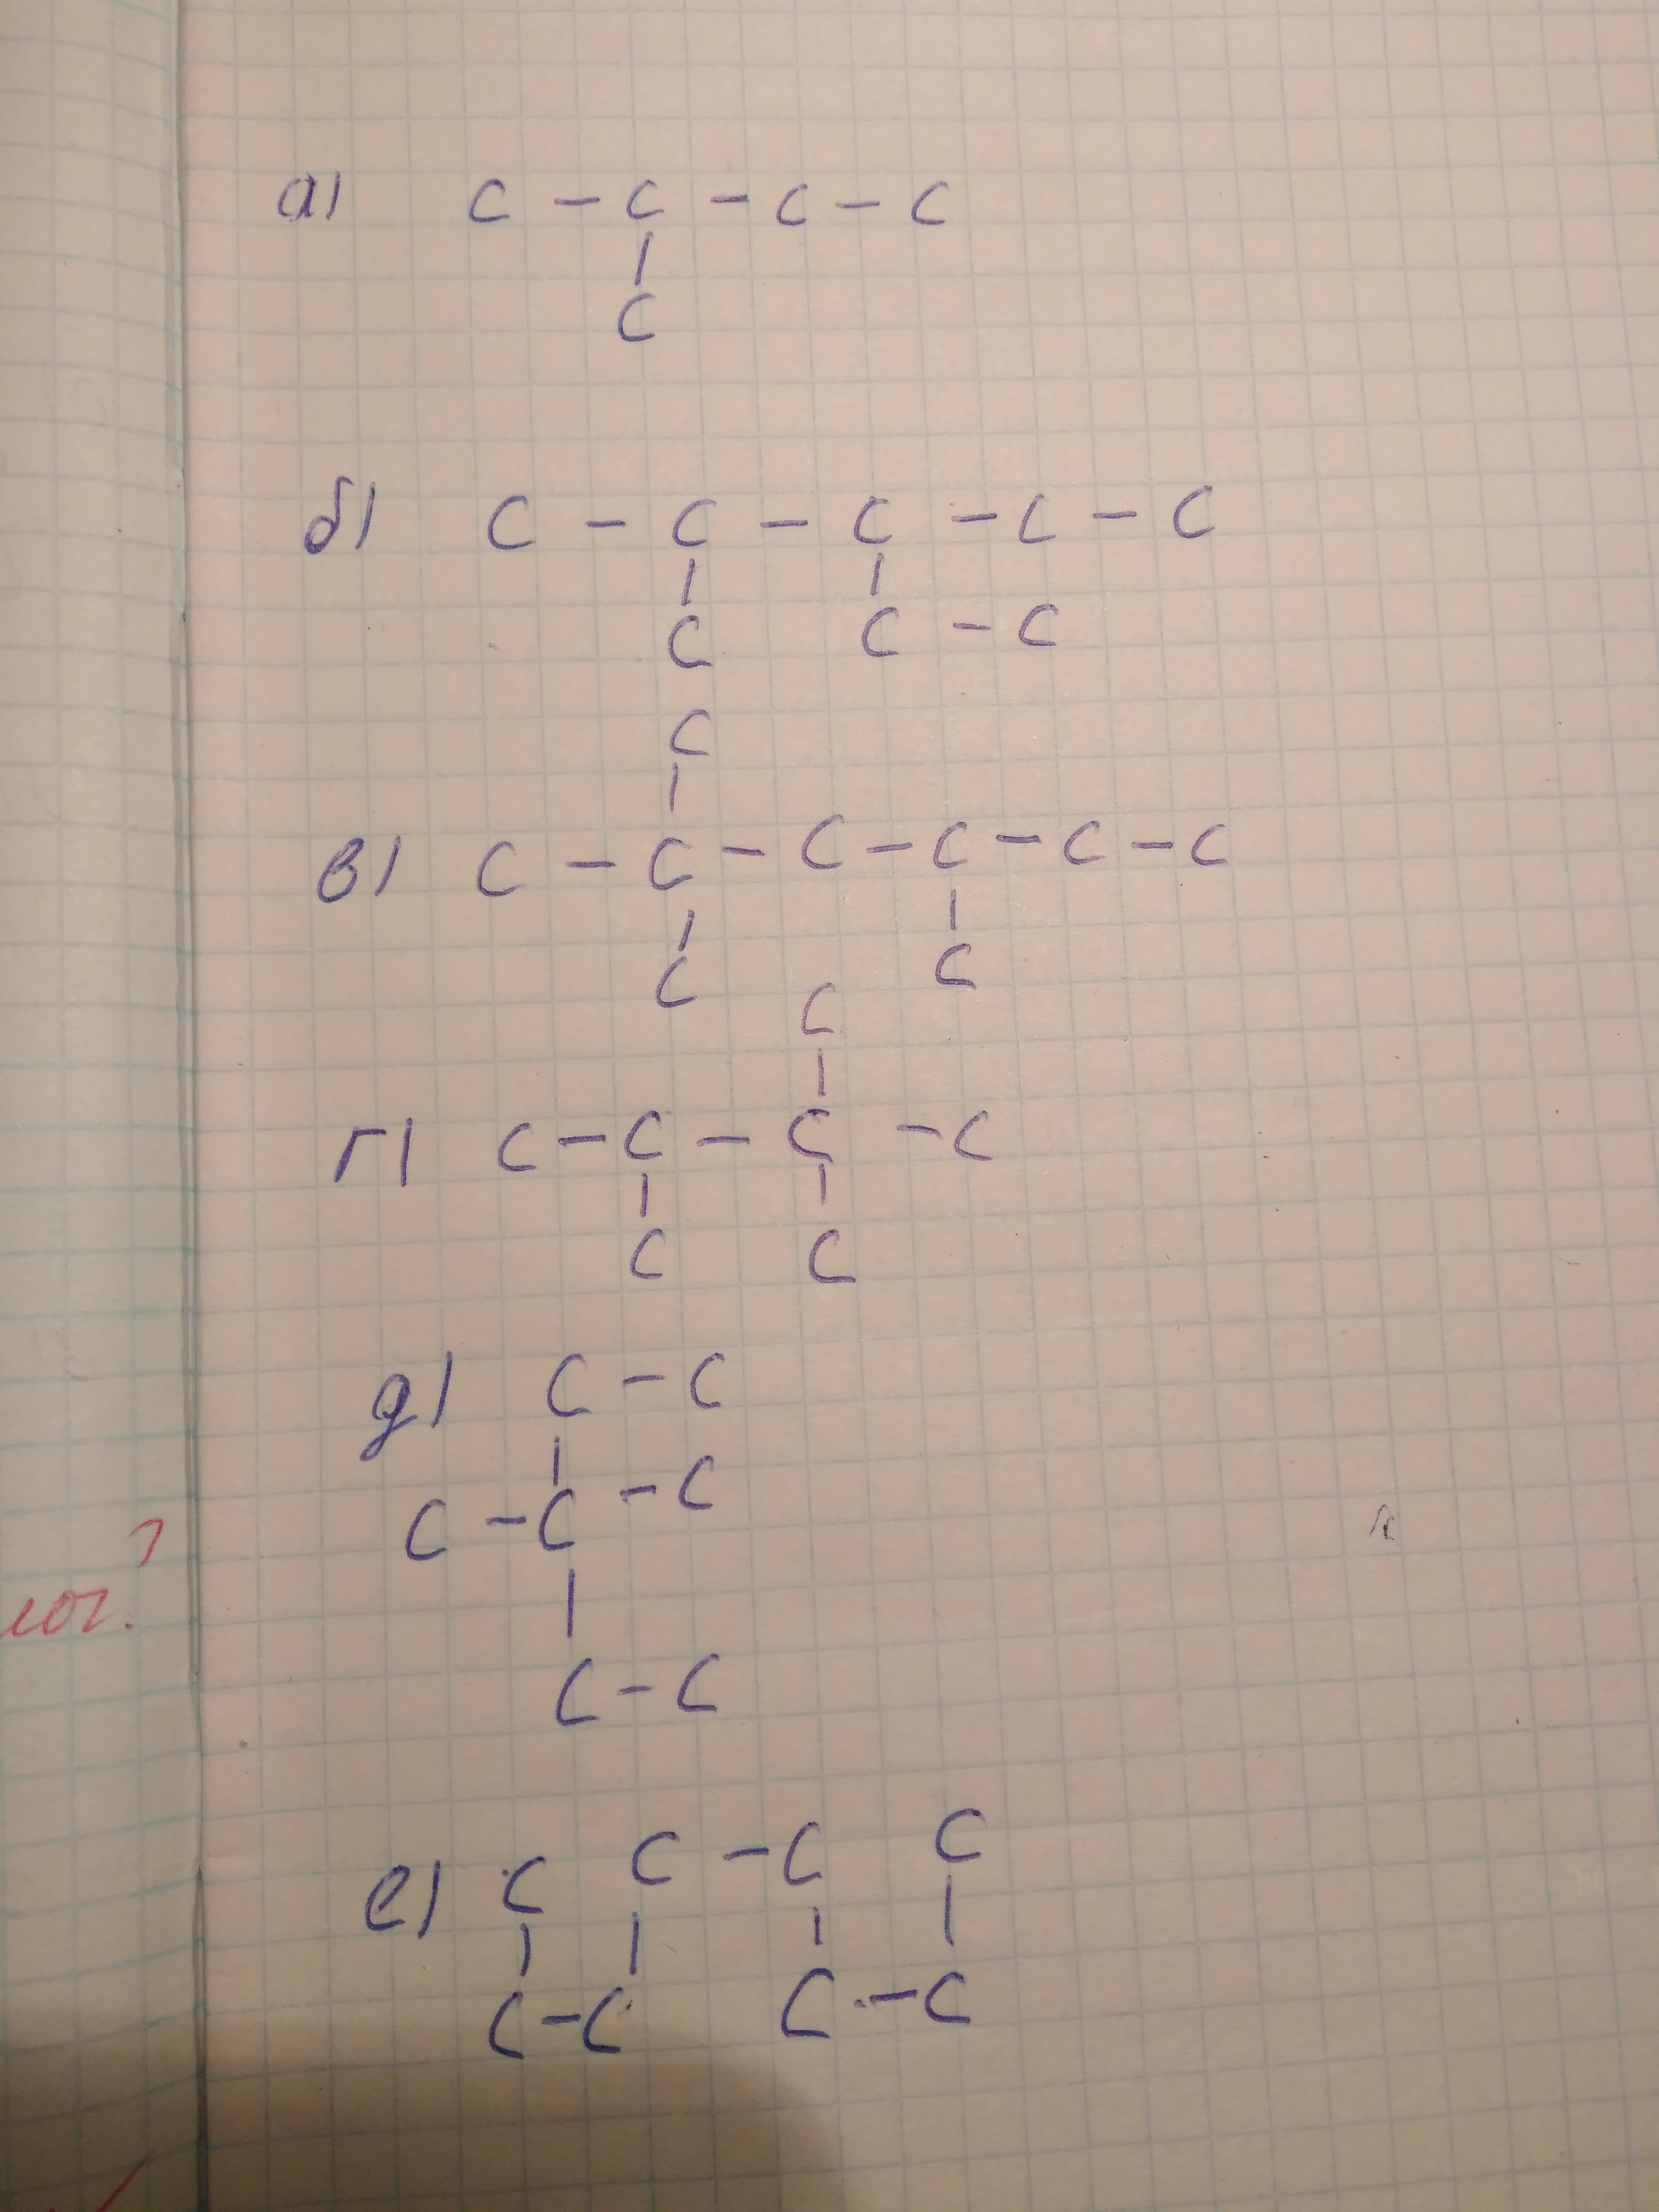 а) C - C - C - C
|
C
б) C - C - C - C - C
| |
C C - C
C
|
в) C - C - C - C - C - C
| |
C C
C
|
г) C - C - C - C
| |
C C
д) C - C
|
C - C - C
|
C - C
е) C C - C C
| | | |
C - C C - C